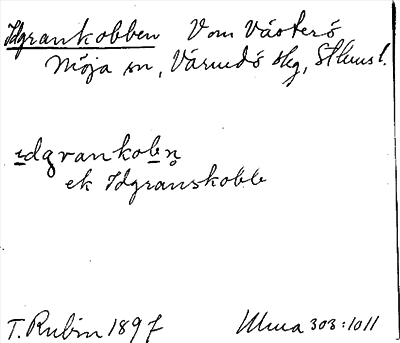 Idgrankobben V om Västerö
Möja sn, Värmdö skg, Sthms l.
idgrankobn̥
ek Idgranskobb
T. Rubin 1897 Ulma 303:1011